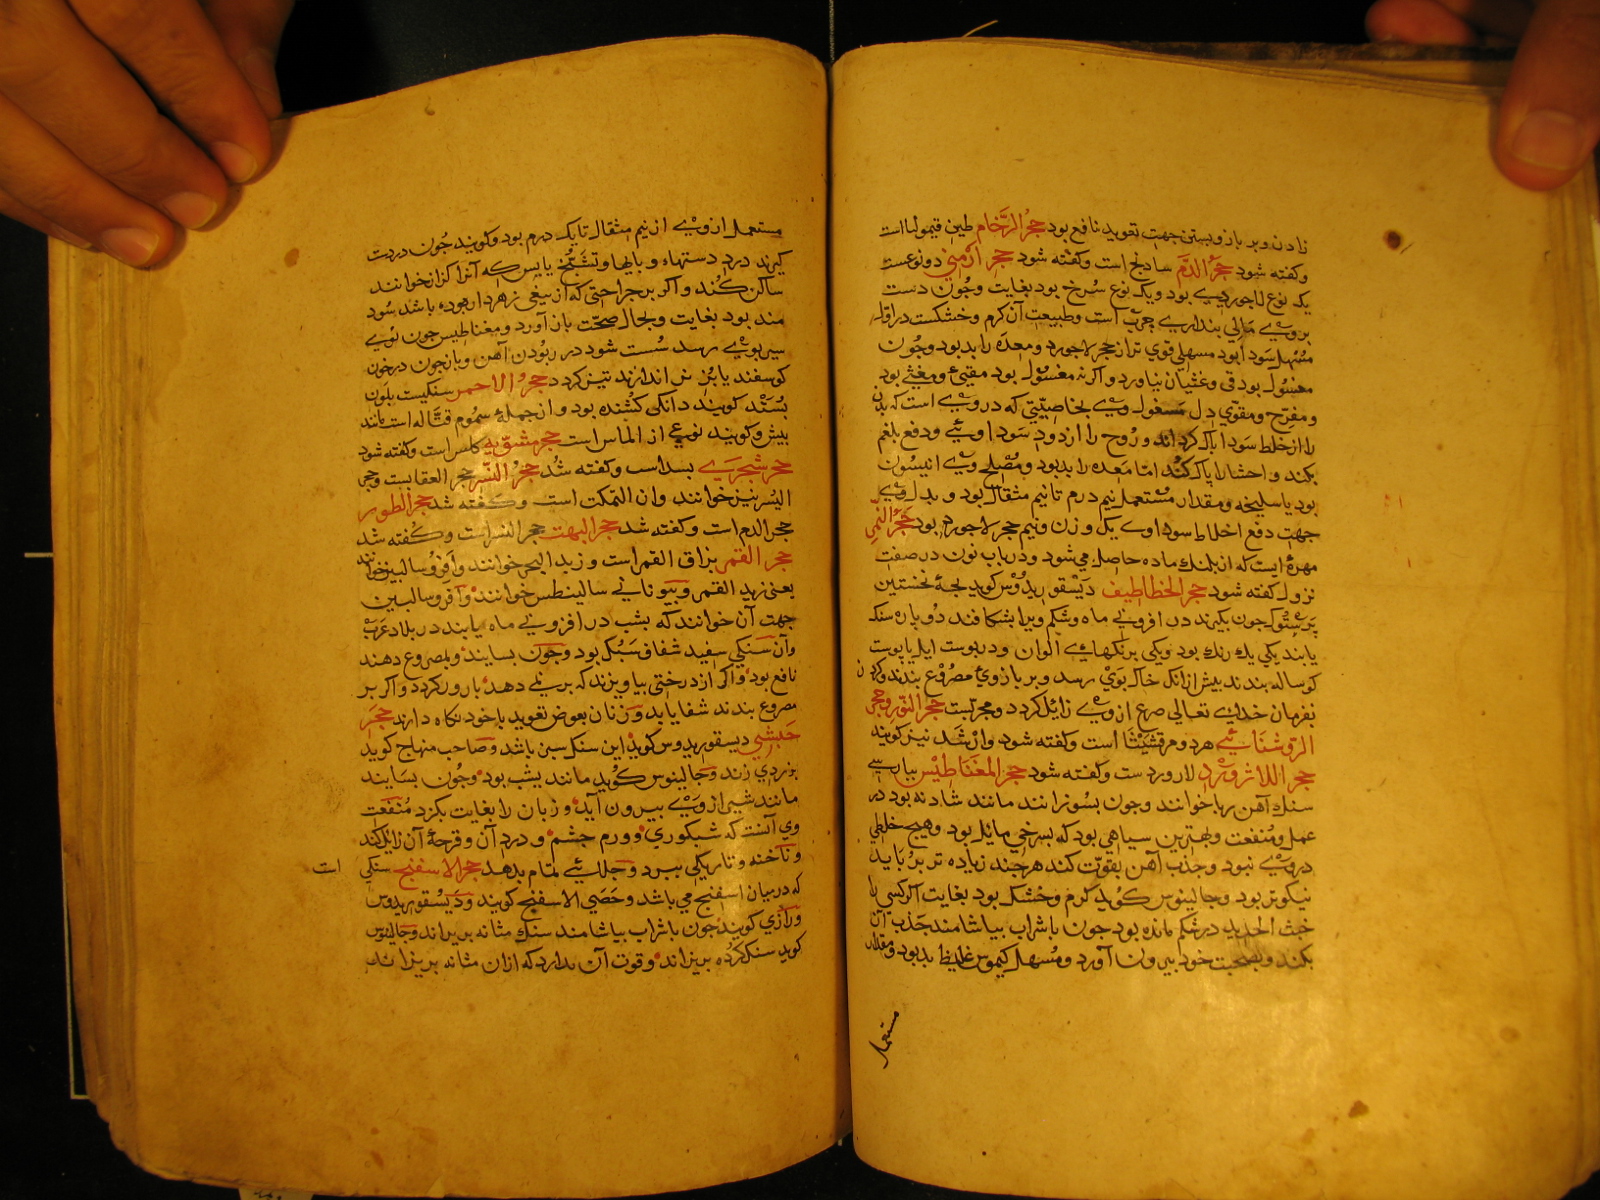 زادن و بر بازو بستن جهت تعوید نافع بود حجر الرخام طین قیمولیا است
و کفته شود حجر الدم سادنج است و کفته شود حجر ارمنی دو نوعست
یک نوع لاجوردی بود و یک نوع سرخ بود بغایت و چون دست
بر وی مالی بنداری چرب است و طبیعت آن کرم و خشکست در اول
مسهل سودا بود مسهلی قوی تر از حجر لاجورد و معده را بد بود و چون
مغسول بود قی و غثیان نیاورد و اکر نه مغسول بود مقیئ و مغثی بود
و مفرح و مقوی دل مغسول وی بخاصیتی که در وی است که بدن
را از خلط سودا باک کرداند و روح را از دود سوداویئ و دفع بلغم
بکند و احشا را باک کند اما معده را بد بود و مصلح وی انیسون
بود یا سلیخه و مقدار مستعمل نیم درم تا نیم مثقال بود و بدل وی
جهت دفع اخلاط سوداوی یک وزن و نیم حجر لاجورد بود حجر النمر
مهره است که از بلنک ماده حاصل می شود و در باب نون در صفت
نزول کفته شود حجر الخطاطیف دیسقوریدوس کوید بجهٔ نخستین
پرستوک جون بکیرند در افزونی ماه و شکم ویرا بشکافند دو باره سنک
یابند یکی یک رنک بود و یکی برنکهای الوان و در بوست ایل یا بوست
کوساله بندند بیش از انک خاک بوی رسد و بر بازوی مصروع بندند و کردن
بفرمان خدای تعالی صرع از وی زایل کردد و مجربست حجر النور و حجر
الروشنایئ هرد و مرقشیثا است و کفته شود وارشد نیز کویند
حجر اللازورد لاروردست و کفته شود حجر المغناطیس بیارسی
سنک آهن ربا خوانند و جون بسوزانند مانند شادنه بود در
عمل و منفعت و بهترین سیاهی بود که بسرخی مایل بود و هیچ خلطی
در وی نبود و جذب آهن بقوت کند هر چند زیاده تر برباید
نیکوتر بود و جالینوس کوید کرم و خشک بود بغایت اکر کسی را
خبث الحدید در شکم مانده بود جون با شراب بیاشامند جذب آن
بکند و بصحبت خود بیرون آورد و مسهل کیموس غلیظ بد بود و مقدار
مستعمل
مستعمل از وی از نیم مثقال تا یک درم بود و کویند چون در دست
کیرند درد دستهاء و بایها و تشنج یابس که آنرا کزاز خوانند
ساکن کند و اکر بر جراحتی که از تیغی زهردار بوده باشد سود
مند بود بغایت و بحال صحت باز آورد و مغناطیس جون بوی
سیر بوی رسد سست شود در ربودن آهن و باز جون در خون
کوسفند یا بز نر اندازند تیز کردد حجر الاحمر سنکیست بلون
بسند کویند دانکی کشنده بود و از جملهٔ سموم قتاله است مانند
بیش و کویند نوعی از الماس است حجر مشقوبه کلس است و کفته شود
حجر شجری بسد است و کفته شد حجر النسر حجر العقابست و حجر
الیسر نیز خوانند وان التمکت است و کفته شد حجر الطور
حجر الدم است و کفته شد حجر البهت حجر النسر است و کفته شد
حجر القمر بزاق القمر است و زبد البحر خوانند و آفروسالینن خوانند
یعنی زبد القمر و بیونانی سالینطس خوانند و آفروسالیین
جهت آن خوانند که بشب در افزونی ماه یابند در بلاد عرب
و آن سنکی سفید شفاف سبک بود و چون بسایند و بمصروع دهند
نافع بود و اکر از درختی بیاویزند که بر نمی دهد بارور کردد و اکر بر
مصروع بندند شفا یابد و زنان بعوض تعوید با خود نکاه دارند حجر
حبشی دیسقوریدوس کوید این سنک سبز باشد و صاحب منهاج کوید
بزردی زند و جالینوس کوید مانند یشب بود و چون بسایند
مانند شیر از وی بیرون آید و زبان را بغایت بکزد منفعت
وی آنست که شبکوری و ورم چشم و درد آن و قرحهٔ آن زایل کند
و ناخنه و تاریکی ببرد و جلائی تمام بدهد حجر الاسفنج سنکی است
که در میان اسفنج می باشد و حصی الاسفنج کویند و دیسقوریدوس
و رازی کویند جون با شراب بیاشامند سنک مثانه بریزاند و جالینوس
کوید سنک کرده بریزاند و قوت آن ندارد که از آن مثانه بریزاند